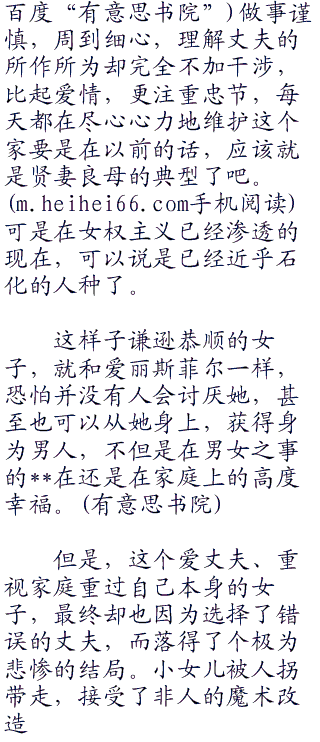 百度“有意思书院”)做事谨
慎，周到细心，理解丈夫的
所作所为却完全不加干涉，
比起爱情，更注重忠节，每
天都在尽心心力地维护这个
家要是在以前的话，应该就
是贤妻良母的典型了吧。
(m.heihei66.com手机阅读)
可是在女权主义已经渗透的
现在，可以说是已经近乎石
化的人种了。
这样子谦逊恭顺的女
子，就和爱丽斯菲尔一样，
恐怕并没有人会讨厌她，甚
至也可以从她身上，获得身
为男人，不但是在男女之事
的**在还是在家庭上的高度
幸福。(有意思书院)
但是，这个爱丈夫、重
视家庭重过自己本身的女
子，最终却也因为选择了错
误的丈夫，而落得了个极为
悲惨的结局。小女儿被人拐
带走，接受了非人的魔术改
造